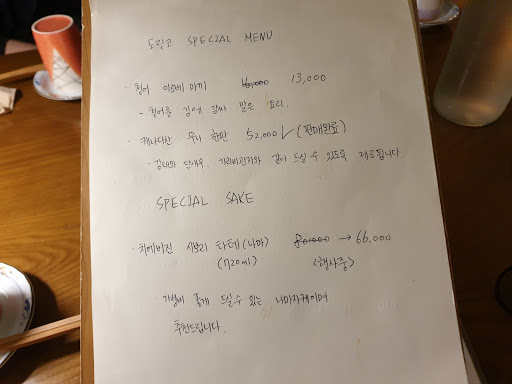 도림코 SPECIAL MENU
· 청어 이소베 마끼 16,000 13,000
- 청어를 김에 감싸 말은 요리.
· 캐나다산 우니 한판 52,000 ✓ (판매완료)
· 감태와 단새우, 가리비관자와 같이 드실 수 있도록 제공됩니다
SPECIAL SAKE
· 치에비진 시보리 타테 (나마) 80,000 → 66,000
(720ml) <행사중>
· 가성비 좋게 드실 수 있는 나마자케이며
추천드립니다.